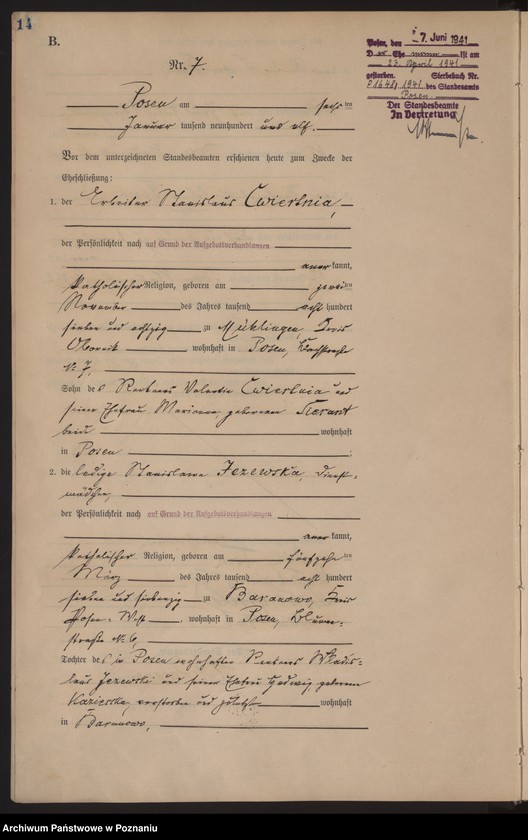 14
B.
Posen, den 7. Juni 1941
Ehe ist am
23. April 1941
gestorben. Sterbebuch Nr.
1941 des Standesamts
Posen
Der Standesbeamte
In Vertretung
Nr. 7.
Posen am sechsten
Januar tausend neunhundert und elf.
Vor dem unterzeichneten Standesbeamten erschienen heute zum Zwecke der
Eheschließung:
1. der Arbeiter Stanislaus Cwiertnia,
der Persönlichkeit nach auf Grund der Aufgebotsverhandlungen
anerkannt,
katholischer Religion, geboren am zweiten
November des Jahres tausend acht hundert
sieben und achtzig zu Mühlingen, Kreis
Obornik wohnhaft in Posen,
Nr. 7,
Sohn des Rentners Valentin Cwiertnia und
seiner Ehefrau Marianna, geborenen
beide wohnhaft
in Posen ;
2. die ledige Stanislawa Jezewska, Dienst-
mädchen,
der Persönlichkeit nach auf Grund der Aufgebotsverhandlungen
anerkannt,
katholischer Religion, geboren am fünfzehnten
März des Jahres tausend acht hundert
sieben und siebenzig zu Baranowo, Kreis
Posen-West, wohnhaft in Posen, Blumen-
straße Nr. 6,
Tochter des in Posen wohnhaften Rentners Wladis-
laus Jezewski und seiner Ehefrau Hedwig, geborenen
verstorben und zuletzt wohnhaft
in Baranowo,
Archiwum Państwowe w Poznaniu